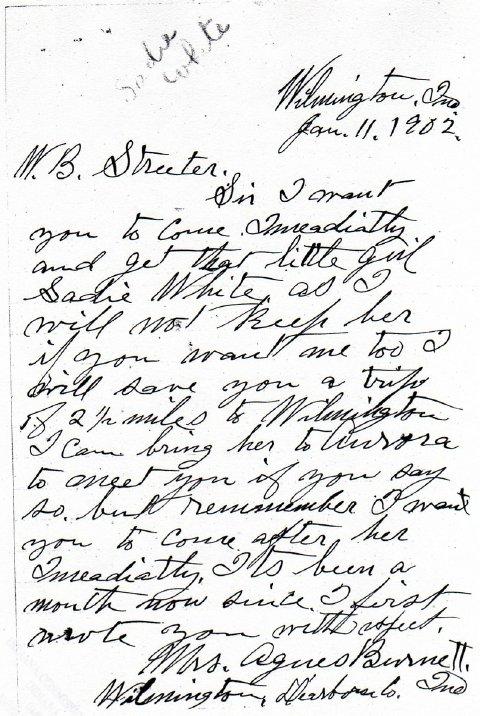 Sadie
White
Wilmington, Ind
Jan. 11. 1902.
W. B. Streeter.
Sir I want
you to come Imeadiatly
and get that little girl
Sadie White, as I
will not keep her
if you want me too I
will save you a trip
of 2 1/2 miles to Wilmington
I can bring her to Aurora
to meet you if you say
so. but remmember I want
you to come after her
Imeadiatly. Its been a
month now since I first
wrote you with respect.
Mrs. Agnes Burnett.
Wilmington, Dearborn Co. Ind